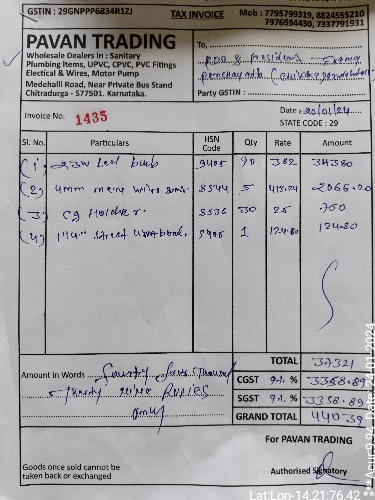 GSTIN : 29GNPPP6834R1ZJ
TAX INVOICE
Mob : 7795799319, 8824555210
7976994430, 7337791931
PAVAN TRADING
Wholesale Dealers in : Sanitary
Plumbing Items, UPVC, CPVC, PVC Fitings
Electical & Wires, Motor Pump
Medehalli Road, Near Private Bus Stand
Chitradurga - 577501. Karnataka.
To,
PDO & President
Party GSTIN :
Invoice No. 1435
Date 20/01/24
STATE CODE : 29
Sl. No. Particulars HSN Code Qty Rate Amount
(1) 23W Led bulb 9405 90 382 34380
(2) 4mm 8544 5 413.24 2066.20
(3) Cg Holder 8536 30 25 750
(4) Street 9405 1 124.80 124.80
TOTAL 37321
Amount in Words Fourty four thousand
thirty nine Rupies
only
CGST 9% % 3358.89
SGST 9% % 3358.89
GRAND TOTAL 44039
For PAVAN TRADING
Goods once sold cannot be
taken back or exchanged
Authorised Signatory
Lat:Lon-14.21:76.42
**Acur:9.94, Date: 24-01-2024